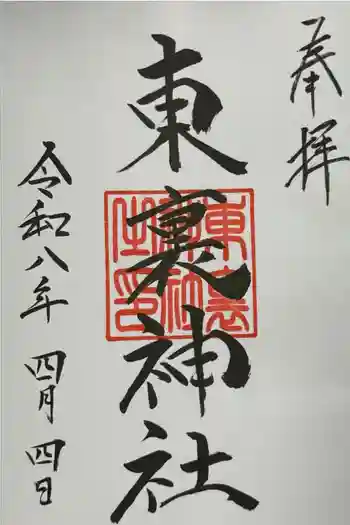 奉拝
東裏神社
東裏神社之印
令和八年 四月 四日